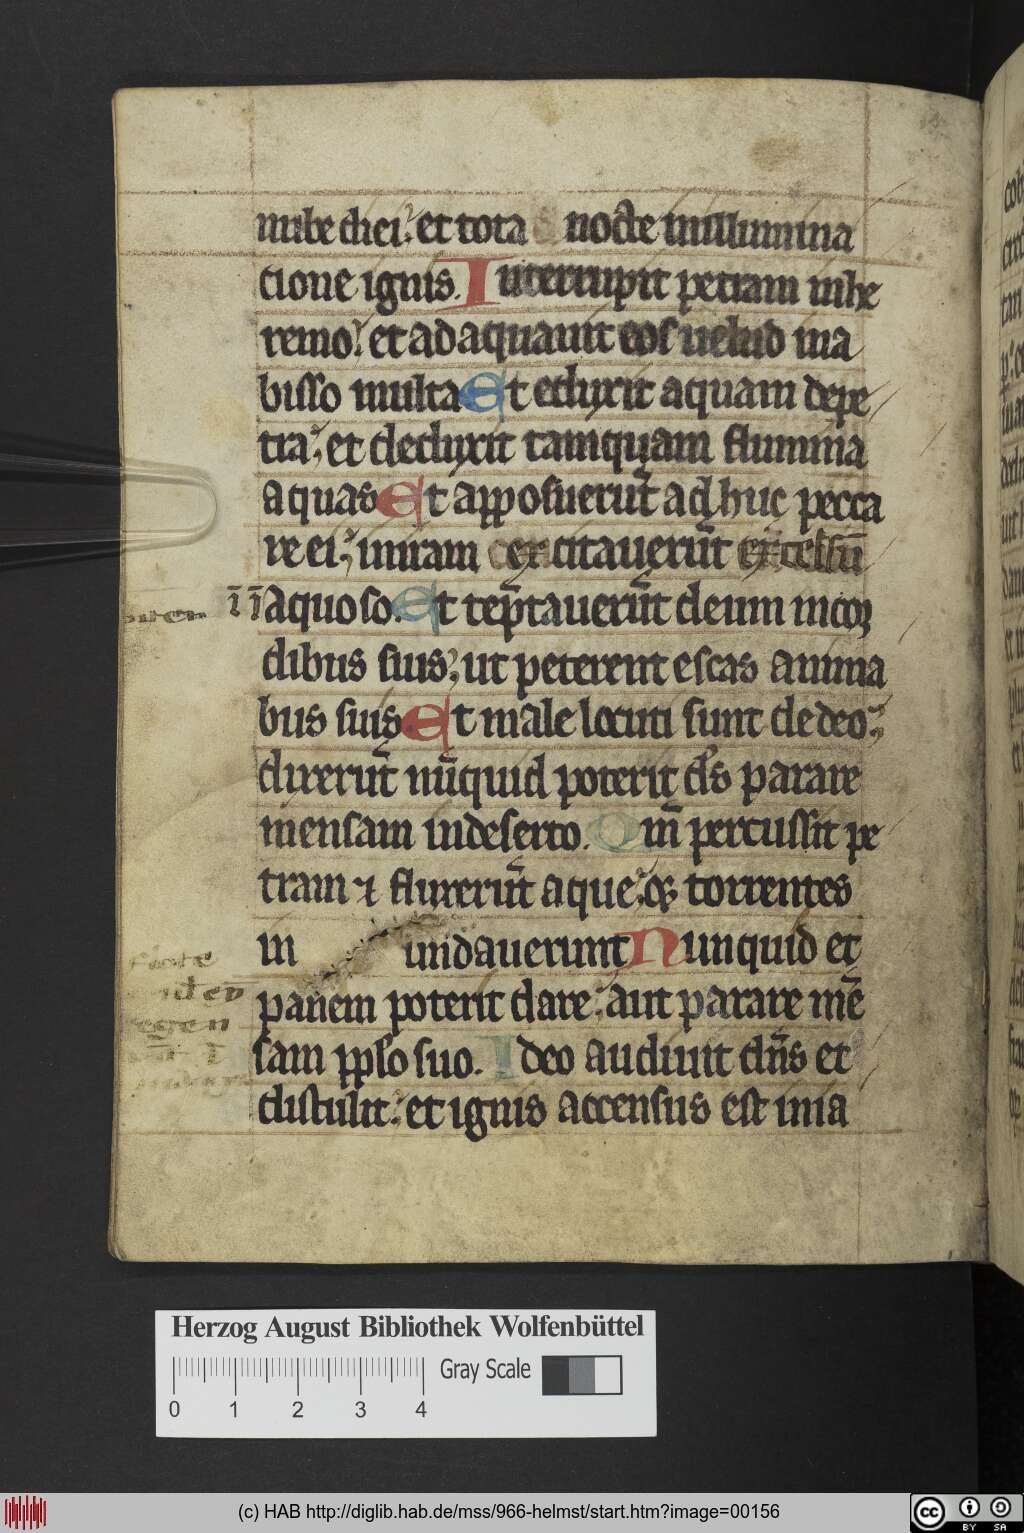 nube diei et tota nocte inillumina
tione ignis. Interrupit petram inhe
remo et adaquauit eos uelud ina
bisso multa Et eduxit aquam depe
tra et deduxit tamquam flumina
aquas Et apposuerūt adhuc pecca
re ei in iram excitauerūt excelsū
ī īaquoso. Et tēptauerūt deum incor
dibus suis ut peterent escas anima
bus suis Et male locuti sunt dedeo
dixerūt nūquid poterit ds parare
mensam indeserto. Qm̄ percussit pe
tram ⁊ fluxerūt aque qꝫ torrentes
in undauerunt Nunquid et
panem poterit dare aut parare mē
sam pplo suo. Ideo audiuit dn̄s et
distulit et ignis accensus est inia
Herzog August Bibliothek Wolfenbüttel
Gray Scale
0 1 2 3 4
(c) HAB http://diglib.hab.de/mss/966-helmst/start.htm?image=00156
cc BY SA